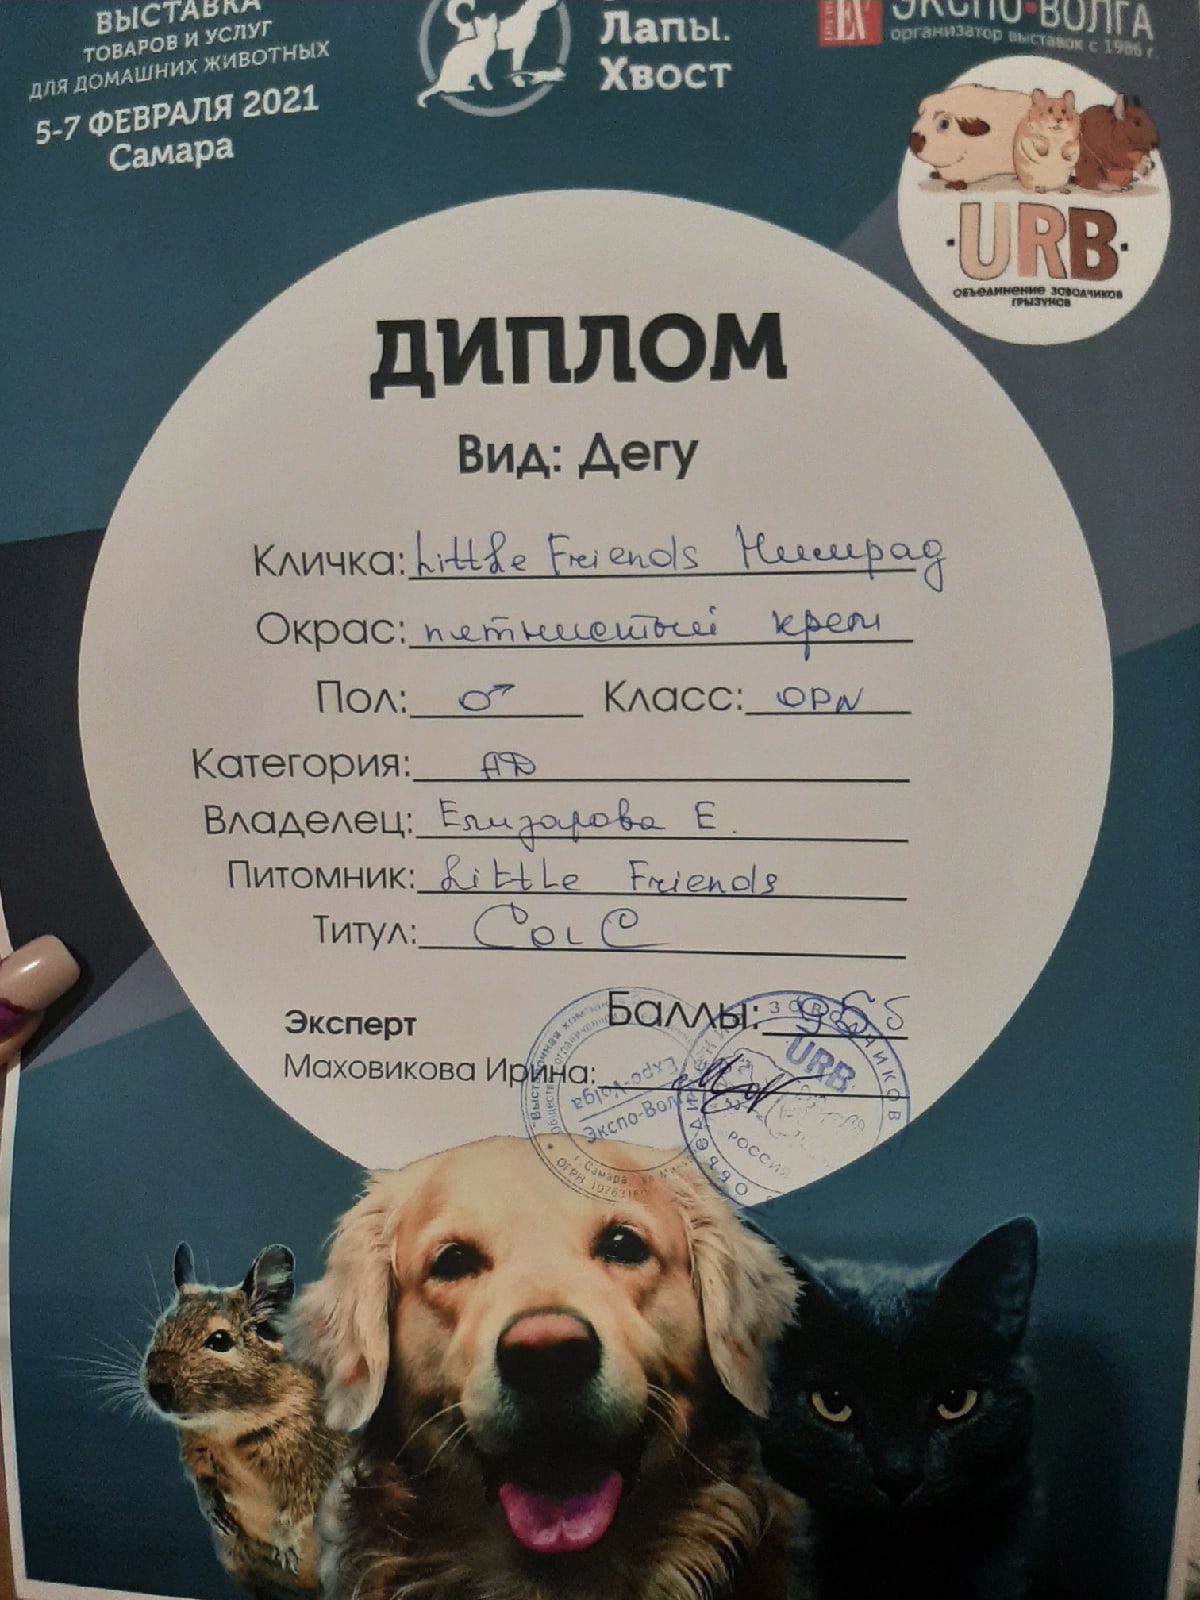 ВЫСТАВКА
ТОВАРОВ И УСЛУГ
ДЛЯ ДОМАШНИХ ЖИВОТНЫХ
5-7 ФЕВРАЛЯ 2021
Самара
Лапы.
Хвост
ЭКСПО-ВОЛГА
организатор выставок с 1986 г.
·URB·
ОБЪЕДИНЕНИЕ ЗАВОДЧИКОВ
ГРЫЗУНОВ
ДИПЛОМ
Вид: Дегу
Кличка: Little Friends
Окрас: пятнистый крем
Пол: ♂ Класс: OPN
Категория: АД
Владелец: Елизарова Е.
Питомник: Little Friends
Титул:
Баллы:
Эксперт
Маховикова Ирина:
Expo-Volga
Экспо-Вол
URB
РОССИЯ